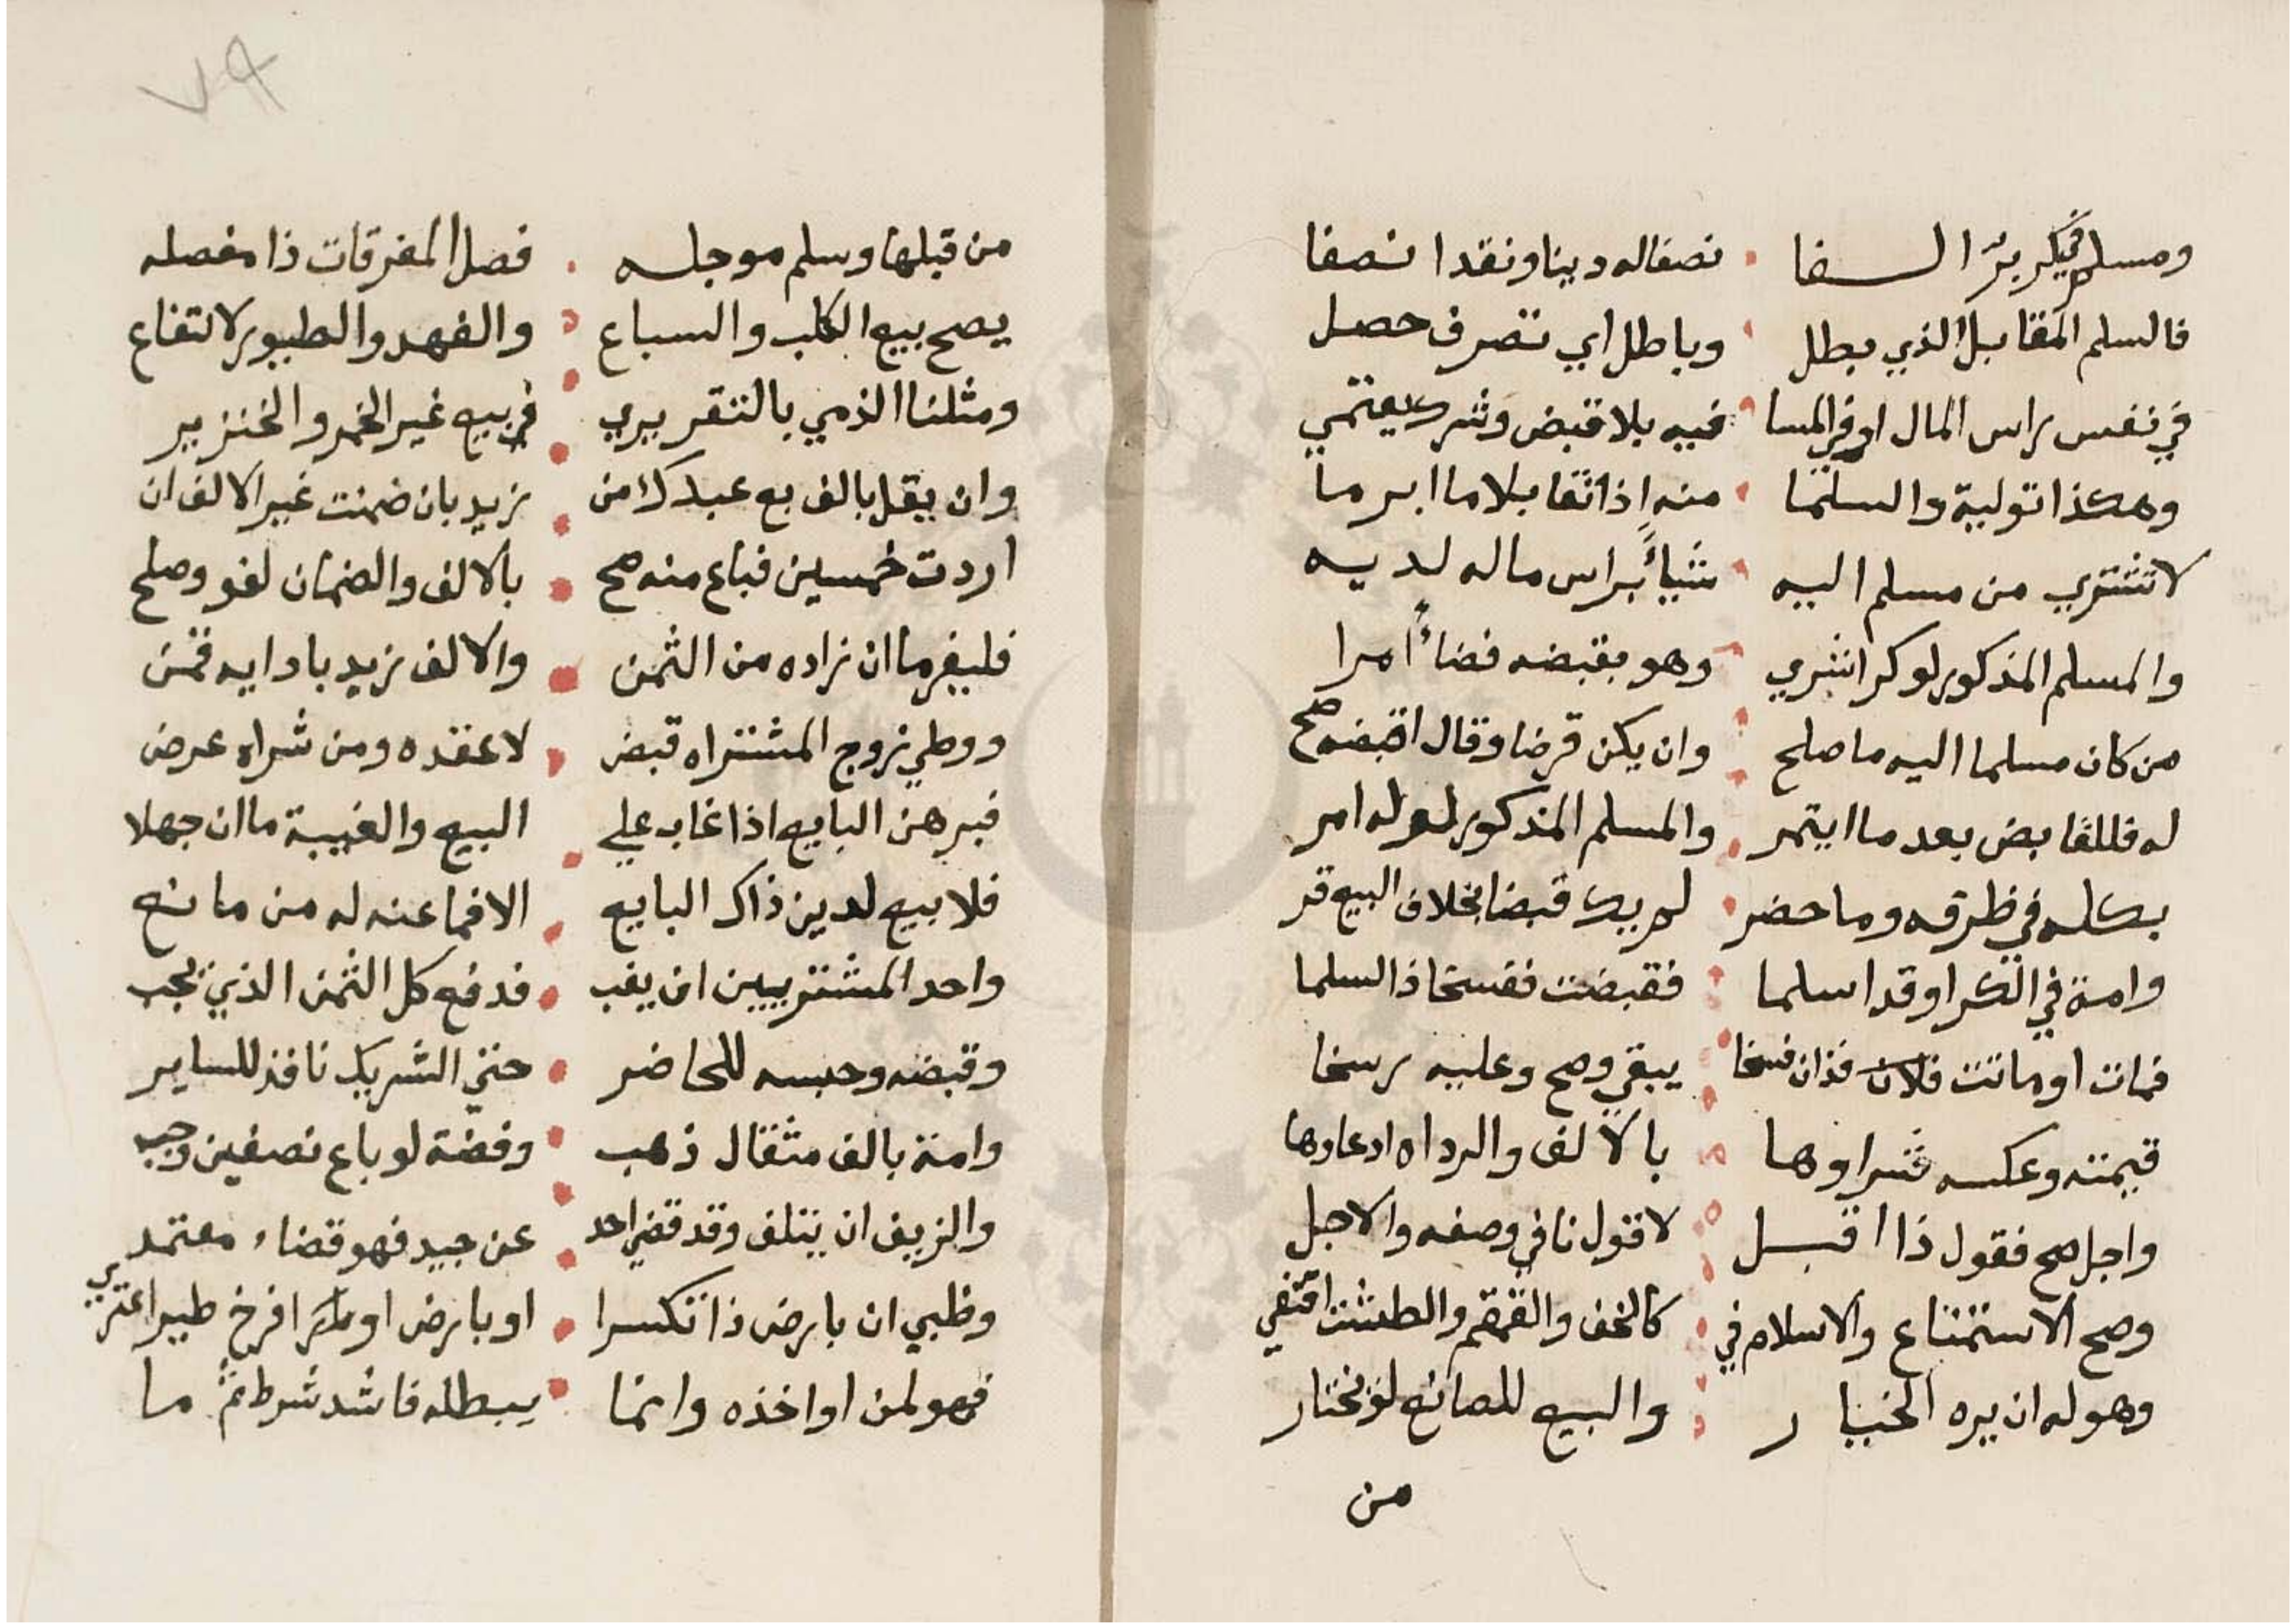 ومسلم في كر بر السفا نصفا له دينا ونقدا نصفا
فالسلم المقابل الذي بطل وباطل اي تصرف حصل
في نفس راس المال او في المسا فيه بلا قبض وشركه يعتمي
وهكذا تولية والسلما منه اذا تقابلا ما ابرما
لا تشتري من مسلم اليه شيأ براس ماله لديه
والمسلم المذكور لو كرا شري وهو بقبضه قضاء امرا
من كان مسلما اليه ما صلح وان يكن قرضا وقال اقبضه صح
له فللقابض بعد ما ايتمر والمسلم المذكور لو له امر
بكله في ظرفه وما حضر لم يك قبضا بخلاف البيع قر
وامة في الكر او قد اسلما فقبضت ففسخا ذا السلما
فمات او ماتت فلان فذان فسخا يبقي وصح وعليه رسخا
قيمته وعكسه شراوها بالالف والرداه ادعاوها
واجل صح فقول ذا اقبل لا قول نافي وصفه والاجل
وصح الاستصناع والاسلام في كالخف والقمقم والطشت اقتفي
وهو له ان يره الخيار والبيع للصانع لو يختار
من
٧٩
من قبلها وسلم موجله فصل المفرقات ذا مفصله
يصح بيع الكلب والسباع والفهد والطيور لانتفاع
ومثلنا الذمي بالتقرير في بيع غير الخمر والخنزير
وان يقل بالف بع عبدك من زيد بان ضمنت غير الالف ان
اردت خمسين فباع منه صح بالالف والضمان لغو وصلح
فليغرما ان زاده من الثمن والالف زيد بادايه قمن
ووطي زوج المشتراه قبض لا عقده ومن شراه عرض
فبرهن البايع اذا غاب علي البيع والغيبة ما ان جهلا
فلا بيع لدين ذاك البايع الا فما عنه له من مانع
واحد المشتريين ان يغب فدفع كل الثمن الذي يجب
وقبضه وحبسه للحاضر حتي الشريك نافذ للساير
وامة بالف مثقال ذهب وفضة لو باع نصفين وجب
والزيف ان يتلف وقد قضي احد عن جيد فهو قضاء معتمد
وظبي ان بارض ذا تكسرا او بارض او افرخ طير اعتري
فهو لمن او اخذه وانما يبطله فاشد شرط ثم ما